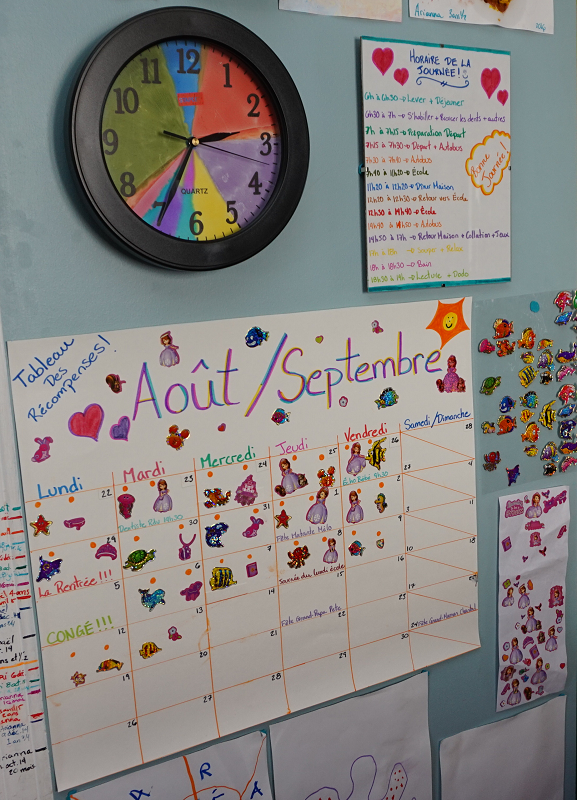 Arianna
12
1
2
3
4
5
6
7
8
9
10
11
QUARTZ
HORAIRE DE LA
JOURNÉE!
6h à 6h30 → Lever + Déjeuner
6h30 à 7h → S'habiller + Brosser les dents + autres
7h à 7h15 → Préparation Départ
7h15 à 7h30 → Départ + Autobus
7h30 à 7h40 → Autobus
7h40 à 11h20 → École
11h20 à 12h20 → Dîner Maison
12h20 à 12h30 → Retour vers École
12h30 à 14h40 → École
14h40 à 14h50 → Autobus
14h50 à 17h → Retour Maison + Collation + Jeux
17h à 18h → Souper + Relaxe
18h à 18h30 → Bain
18h30 à 19h → Lecture + Dodo
Bonne
Journée!
Tableau
Des
Récompenses!
Août/Septembre
Lundi
Mardi
Mercredi
Jeudi
Vendredi
Samedi/Dimanche
22
23
24
25
26
28
27
Dentiste
Écho Bébé
29
30
31
1
2
4
3
La Rentrée!!!
Fête
5
6
7
8
9
11
10
CONGÉ!!!
Journée du lundi école
12
13
14
15
16
18
17
Fête Grand-Papa
19
20
21
22
23
25
24
Fête Grand-Maman
26
27
28
29
30
A
R
A